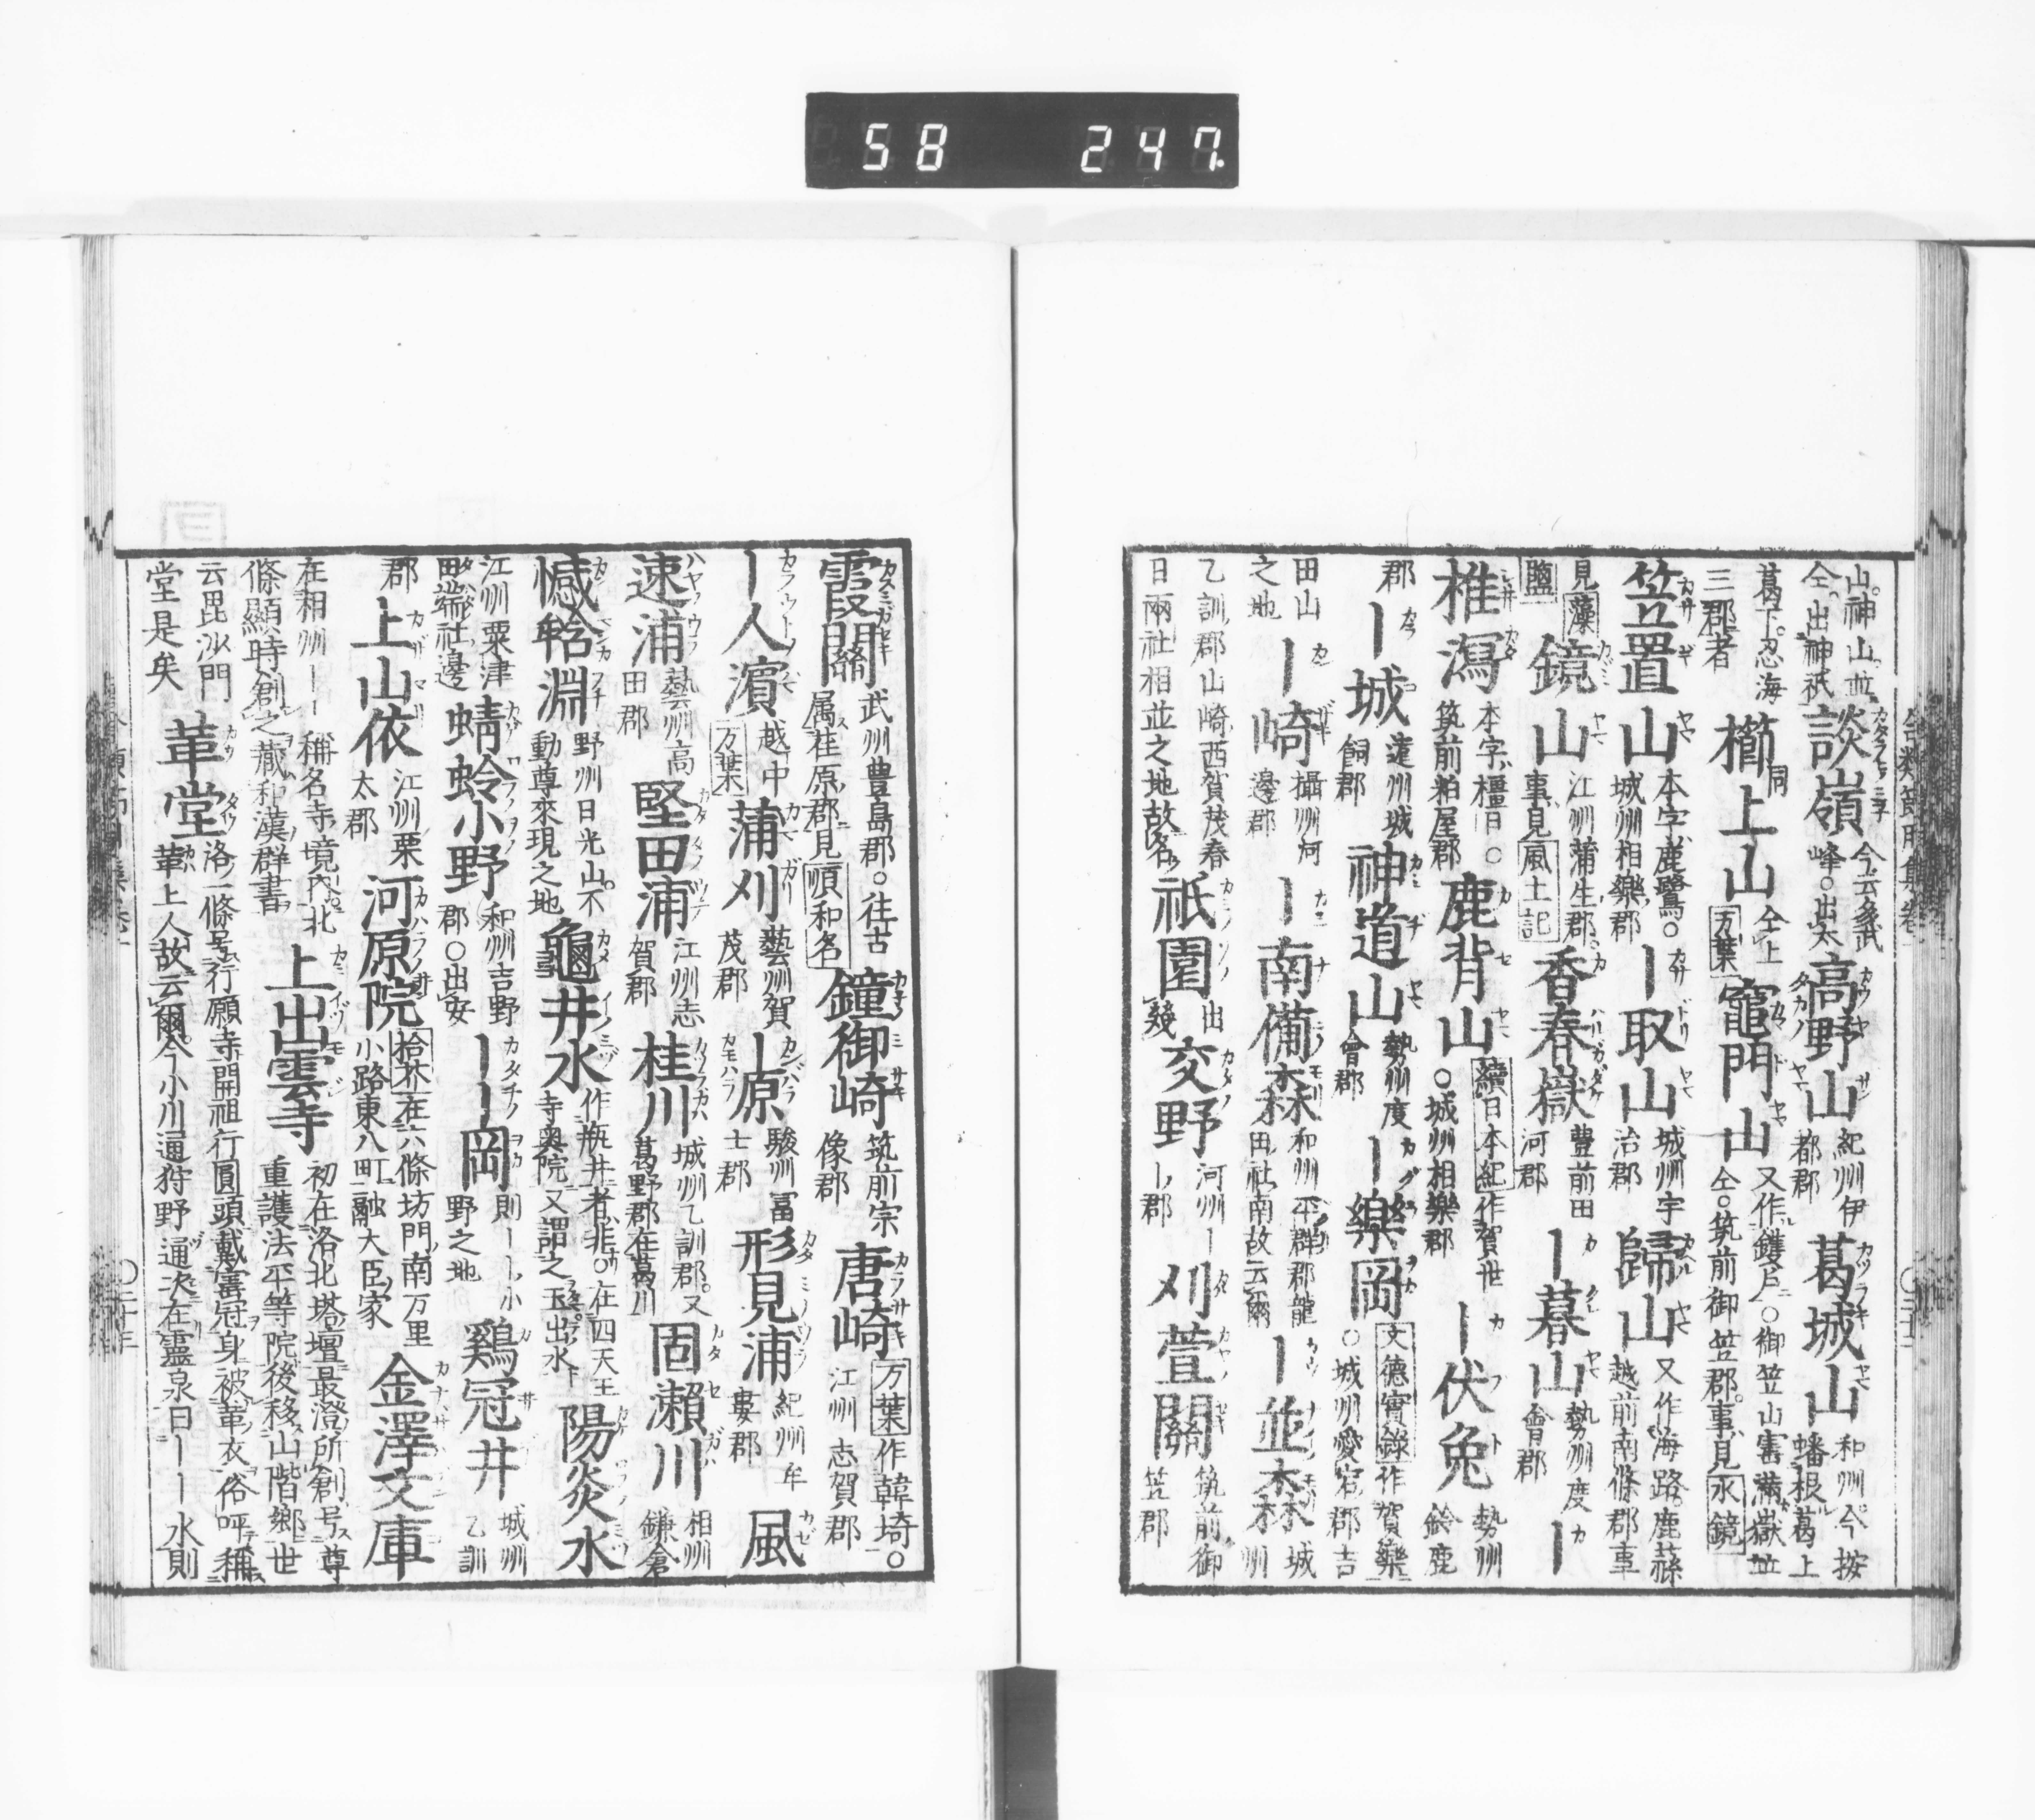 58 247
合類節用集卷一
山。神山。並仝。出神祇 談嶺 今云多武峰。出太 高野山 紀州伊都郡 葛城山 和州。今按蟠根葛上
葛下。忍海三郡者 櫛上山 仝上万葉 竈門山 又作鑊戶。○御笠山寳滿嶽並仝。筑前御笠郡。事見永鏡
笠置山 本字鹿鷺。○城州相樂郡 ー取山 城州宇治郡 歸山 又作海路。鹿蒜越前南條郡事
見藻鹽 鏡山 江州蒲生郡事見風土記 香春嶽 豊前田河郡 ー暮山 勢州度會郡 ー
椎瀉 本字橿日。○筑前粕屋郡 鹿背山 續日本紀作賀世○城州相樂郡 ー伏兔 勢州鈴鹿
郡 ー城 遠州城飼郡 神道山 勢州度會郡 ー樂岡 文德實錄作賀樂○城州愛宕郡吉
田山之地 ー崎 攝州河邊郡 ー南備森 和州平群郡龍田社南故云爾 ー並森 城州
乙訓郡山崎西賀茂春日兩社相並之地故名 祇園 出幾 交野 河州ー郡 刈萱關 筑前御笠郡
霞關 武州豊島郡。○往古属荏原郡見順和名 鐘御崎 筑前宗像郡 唐崎 万葉作韓埼。○江州志賀郡
ー人濵 越中万葉 蒲刈 藝州賀茂郡 ー原 駿州冨士郡 形見浦 紀州牟婁郡 風
速浦 藝州高田郡 堅田浦 江州志賀郡 桂川 城州乙訓郡。又葛野郡在葛川 固瀨川 相州鎌倉
憾𫞕淵 野州日光山。不動尊來現之地 龜井水 作瓶井者非。○在四天王寺奥院又謂之玉出水 陽炎水
江州粟津田端社邊 蜻蛉小野 和州吉野郡○出安 ーー岡 則ーー小野之地 鷄冠井 城州乙訓
郡 上山依 江州栗太郡 河原院 拾芥在六條坊門南万里小路東八町融大臣家 金澤文庫
在相州ーー稱名寺境內。北條顯時創之藏和漢群書 上出雲寺 初在洛北塔壇最澄所創号尊重護法平等院後移山階鄉世
云毘沙門堂是矣 革堂 洛一條号行願寺開祖行圓頭戴寳冠身被革衣俗呼稱革上人故云爾今小川通狩野通次在靈泉曰ーー水則